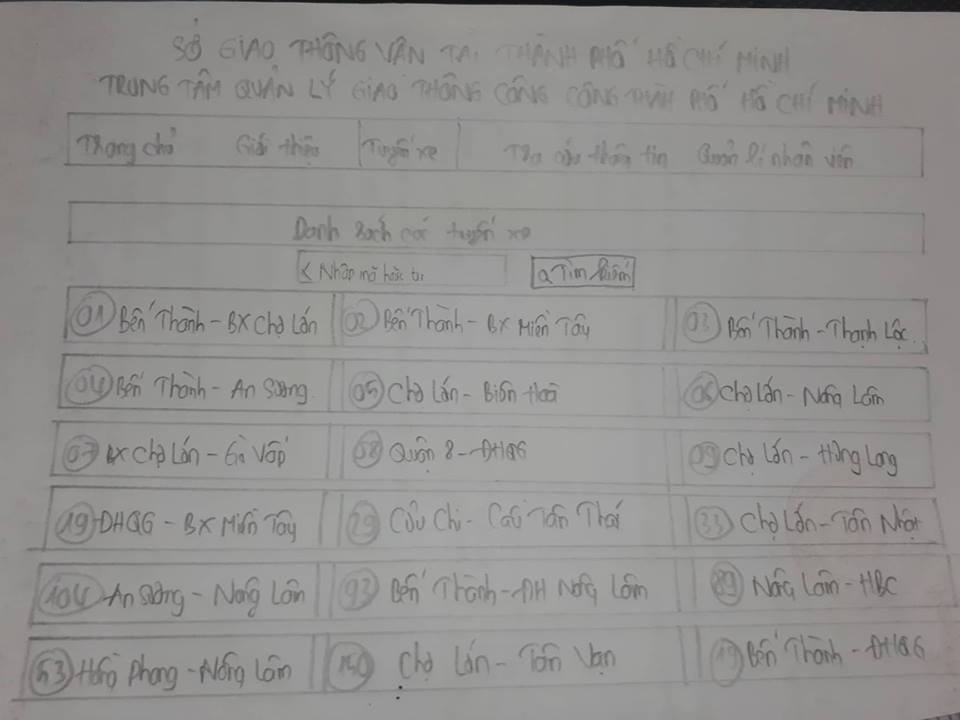 SỞ GIAO THÔNG VẬN TẢI THÀNH PHỐ HỒ CHÍ MINH
TRUNG TÂM QUẢN LÝ GIAO THÔNG CÔNG CỘNG THÀNH PHỐ HỒ CHÍ MINH
Trang chủ Giới thiệu Tuyến xe Tra cứu thông tin Quản lí nhân viên
Danh sách các tuyến xe
< Nhập mã hoặc từ Tìm kiếm
01 Bến Thành - BX Chợ Lớn 02 Bến Thành - BX Miền Tây 03 Bến Thành - Thạnh Lộc
04 Bến Thành - An Sương 05 Chợ Lớn - Biên Hoà 06 Chợ Lớn - Nông Lâm
07 BX Chợ Lớn - Gò Vấp 08 Quận 8 - ĐHQG 09 Chợ Lớn - Hưng Long
19 ĐHQG - BX Miền Tây 29 Cầu Tân Thái 33 Chợ Lớn - Tân Nhật
104 An Sương - Nông Lâm 93 Bến Thành - ĐH Nông Lâm 89 Nông Lâm - HBC
53 Hồng Phong - Nông Lâm 150 Chợ Lớn - Tân Vạn 19 Bến Thành - ĐHQG